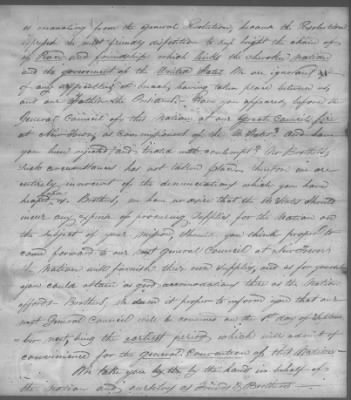 as emanating from the General Resolution, because the Resolution
expressed the most friendly disposition to keep bright the chain of
of Peace and friendship which binds the Cherokee Nation
and the government of the United States. We are ignorant
of any expression of breach, having taken place between us
and our Father the President. Have you appeared before the
General Council of this Nation at our Great Council fire
at New Town, as Commissioner of the U. States? And have
you been rejected and treated with contempt? No. Brothers,
such circumstances has not taken place, therefore we are
entirely innocent of the denunciations which you have
Brothers, we have no desire that the U. States should
incur any expense of procuring supplies, for the Nation on
the subject of your mission, should you think proper to
come forward to our next General Council at New Town
Nation will furnish their own supplies, and as for yourselves
you could obtain as good accommodations there as the Nation
affords. Brothers, We deem it proper to inform you that our
next General Council will be convened on the 1st day of Septem
ber next, being the earliest period, which will admit of
convenience for the general Convention of this Nation
We take you by the hand in behalf of
the Nation and ourselves as friends & Brothers